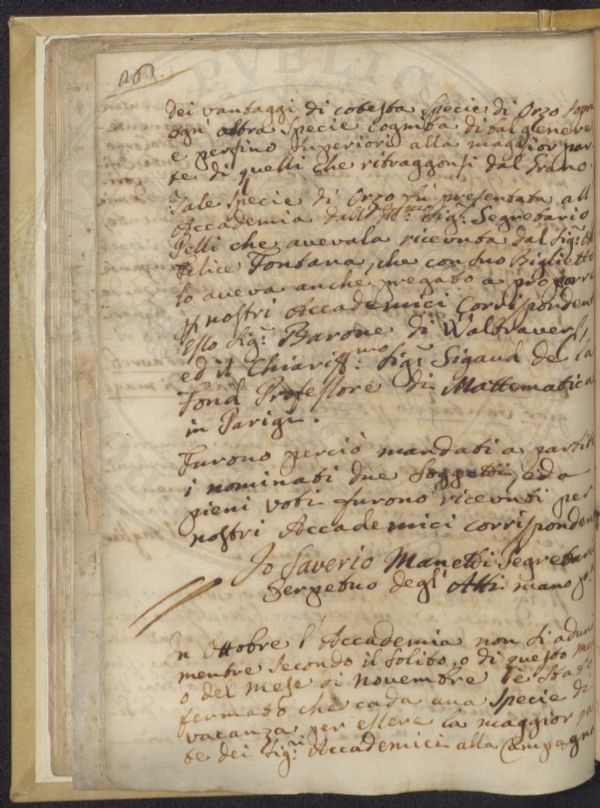 dei vantaggi di cotesta specie di Orzo sopra
ogni altra specie cognita di tal genere
e persino superiori alla maggior par
te di quelli che ritraggonsi dal Grano.
Tale specie di Orzo fù presentata all
Accademia dall' Sig.r Segretario
Pelli che avevala ricevuta dal Sig.r
Felice Fontana, che con suo Biglietto
lo aveva anche pregato a proporre
p. nostri Accademici Corrispondenti
esso Sig.r Barone di Waltravers,
ed il Chiariss.mo Sig.r Sigaud de la
Fond Professore di Mattematica
in Parigi.
Furono perciò mandati a partito
i nominati due Soggetti, ed a
pieni voti furono ricevuti per
nostri Accademici corrispondenti
Io Saverio Manetti Segretario
Perpetuo degl' Atti mano p.a
In Ottobre l'Accademia non si aduna
mentre secondo il solito, o di questo mese
o del mese di Novembre è stato
fermato che cada una specie di
vacanza per essere la maggior par
te dei Sig.ri Accademici alla Campagna